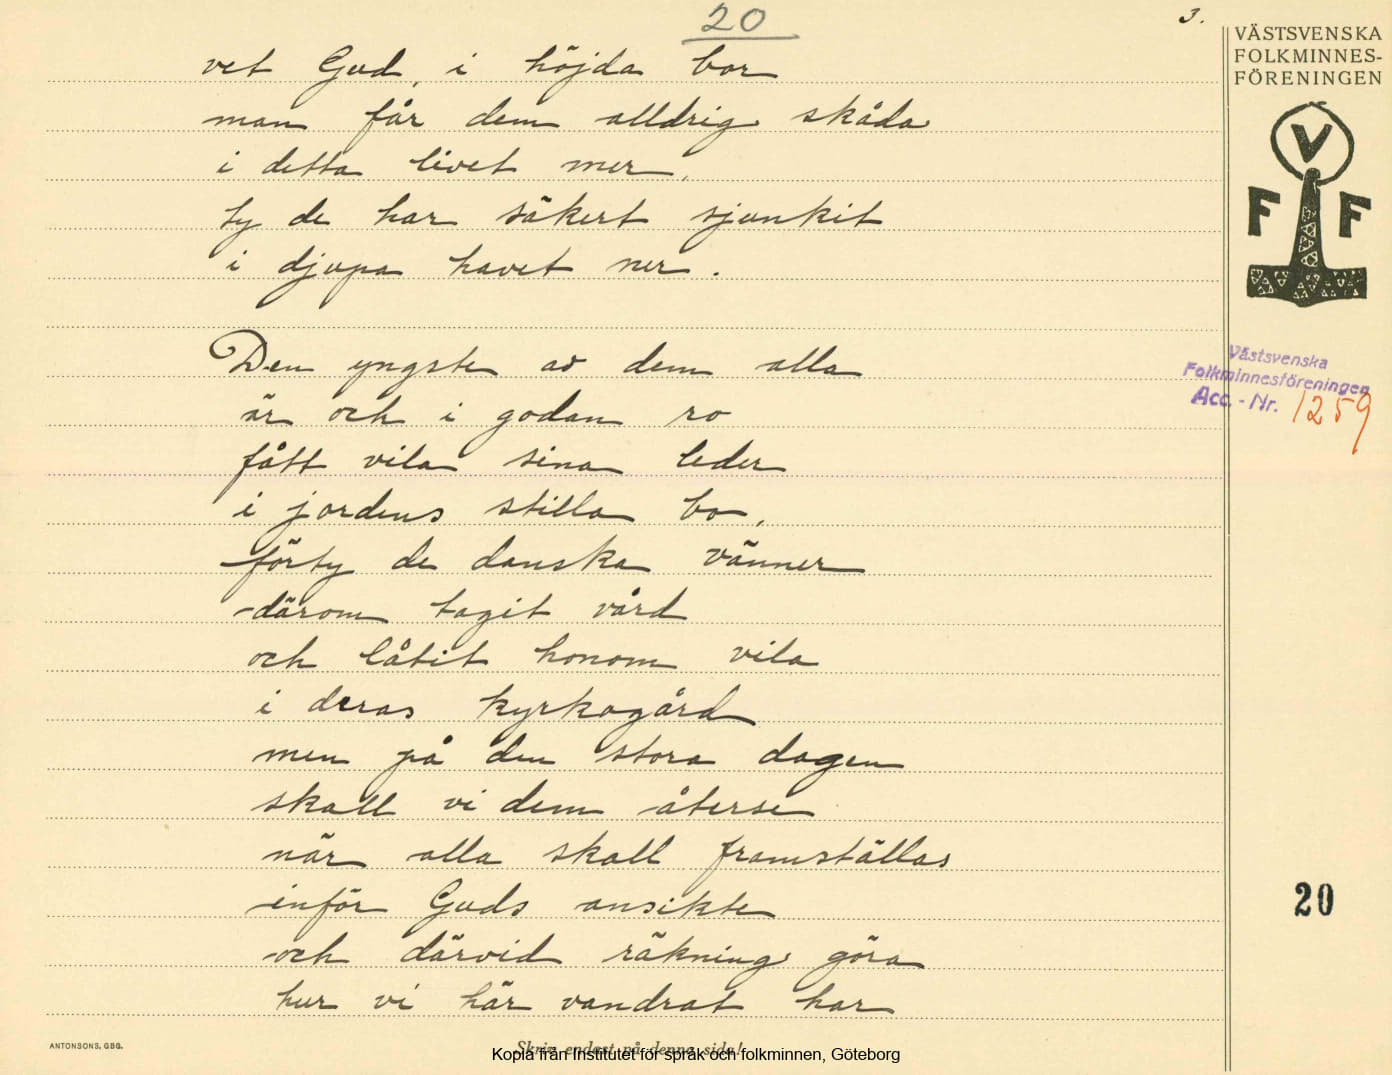 20
3.
vet Gud, i höjda bor
man får dem alldrig skåda
i detta livet mer,
ty de har säkert sjunkit
i djupa havet ner.
Den yngste av dem alla
är och i godan ro
fått vila sina leder
i jordens stilla bo,
förty de danska vänner
därom tagit vård
och låtit honom vila
i deras kyrkogård
men på den stora dagen
skall vi dem återse
när alla skall framställas
inför Guds ansikte
och därvid räkning göra
hur vi här vandrat har
VÄSTSVENSKA
FOLKMINNES-
FÖRENINGEN
V
F F
Västsvenska
Folkminnesföreningen
Acc. - Nr. 1259
20
ANTONSONS, GBG.
Skriv endast på denna sida!
Kopia från Institutet för språk och folkminnen, Göteborg